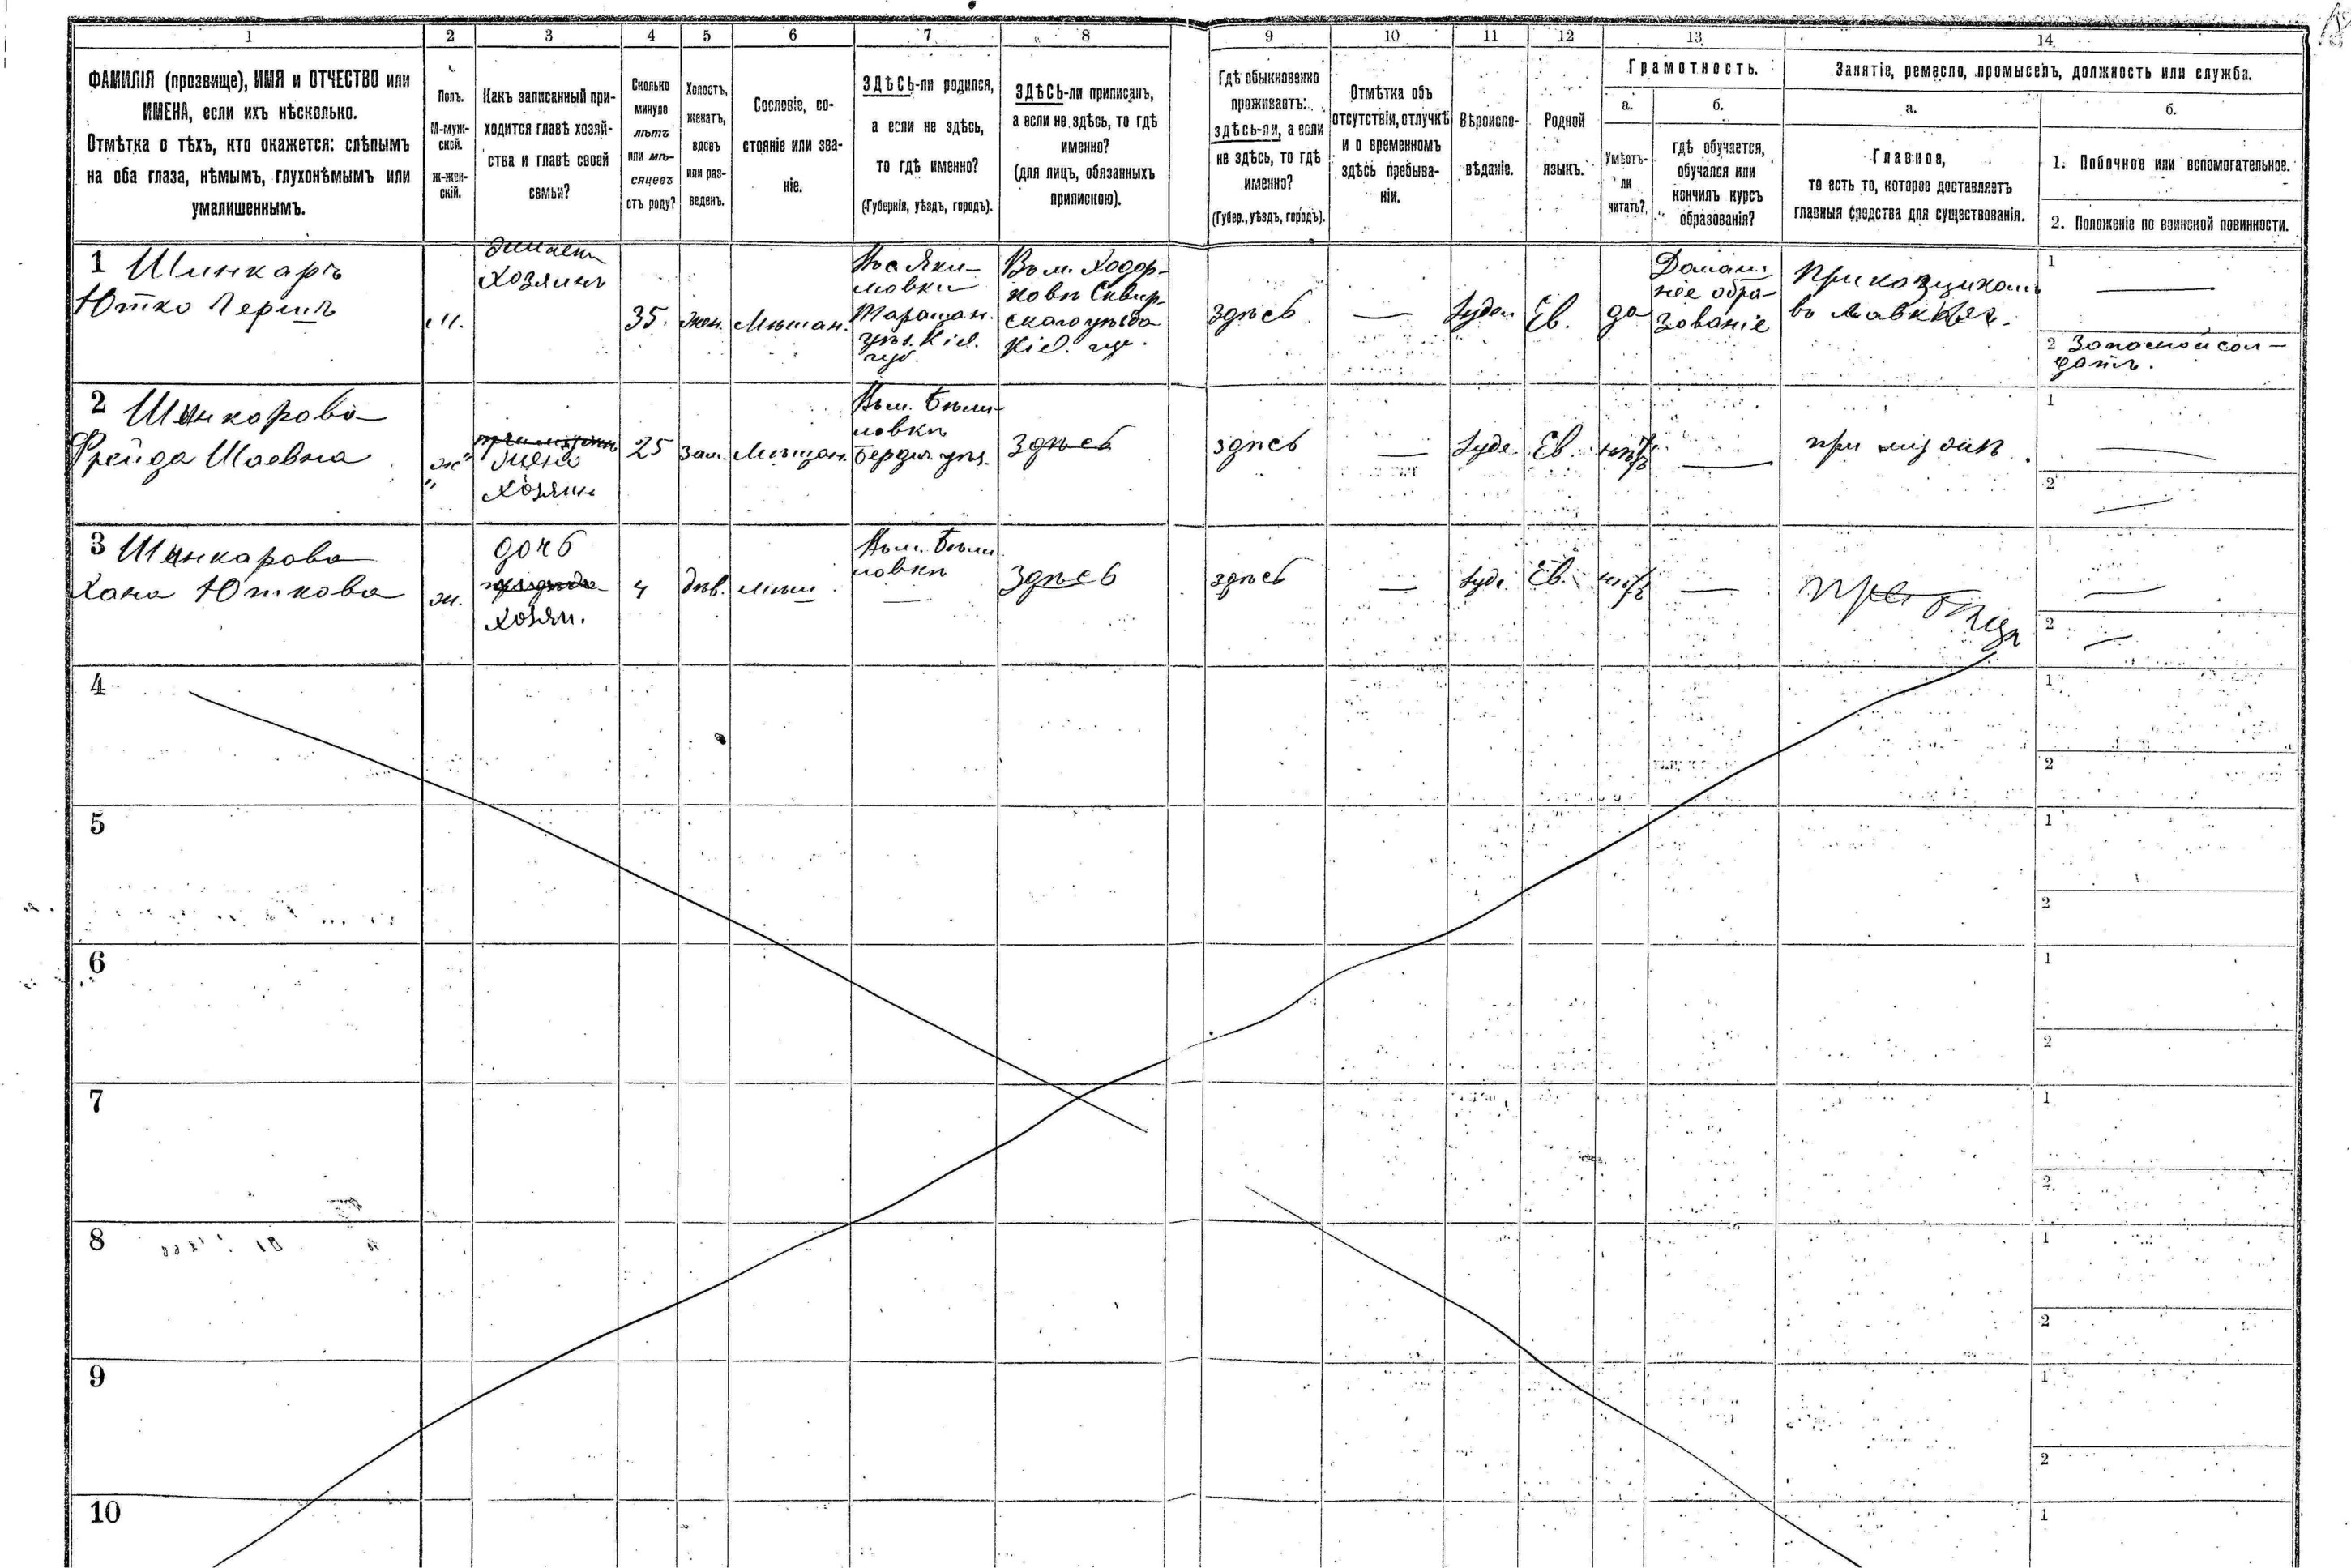 1 2 3 4 5 6 7 8 9 10 11 12 13 14
ФАМИЛІЯ (прозвище), ИМЯ и ОТЧЕСТВО или
ИМЕНА, если ихъ нѣсколько.
Отмѣтка о тѣхъ, кто окажется: слѣпымъ
на оба глаза, нѣмымъ, глухонѣмымъ или
умалишеннымъ.
Полъ.
М-муж-
ской.
ж-жен-
скій.
Какъ записанный при-
ходится главѣ хозяй-
ства и главѣ своей
семьи?
Сколько
минуло
лѣтъ
или мѣ-
сяцевъ
отъ роду?
Холостъ,
женатъ,
вдовъ
или раз-
веденъ.
Сословіе, со-
стояніе или зва-
ніе.
ЗДѢСЬ-ли родился,
а если не здѣсь,
то гдѣ именно?
(Губернія, уѣздъ, городъ).
ЗДѢСЬ-ли приписанъ,
а если не здѣсь, то гдѣ
именно?
(для лицъ, обязанныхъ
припискою).
Гдѣ обыкновенно
проживаетъ:
здѣсь-ли, а если
не здѣсь, то гдѣ
именно?
(Губер., уѣздъ, городъ).
Отмѣтка объ
отсутствіи, отлучкѣ
и о временномъ
здѣсь пребыва-
ніи.
Вѣроиспо-
вѣданіе.
Родной
языкъ.
Грамотность.
а.
Умѣетъ-
ли
читать?
б.
гдѣ обучается,
обучался или
кончилъ курсъ
образованія?
Занятіе, ремесло, промыселъ, должность или служба.
а.
Главное,
то есть то, которое доставляетъ
главныя средства для существованія.
б.
1. Побочное или вспомогательное.
2. Положеніе по воинской повинности.
1 Шинкарь
Ютко Герш
м.
Хозяинъ
35
жен.
Мѣщан.
Въ с Яки-
мовки
Таращан.
уѣз. Кіев.
губ.
Въ м. Ходор-
ковѣ Сквир-
скаго уѣзда
Кіев. гу.
здѣсь
—
Іуде.
Ев.
да
Домаш
нее обра-
зованіе
Прикащикомъ
въ Лавкѣ
1 —
2 Запасной сол-
датъ.
2 Шинкарова
Фрейда Шаевна
ж
жена
хозяин
25
зам.
Мѣщан.
Въ м. Бѣли
ловкѣ
Берди. уѣз.
здѣсь
здѣсь
—
Іуде.
Ев.
нѣтъ
—
при мужѣ
1 —
2 —
3 Шинкарова
Хана Юткова
ж.
дочь
хозяи.
4
дѣв.
мѣщ
Въ м. Бѣли
ловкѣ
здѣсь
здѣсь
—
Іуде.
Ев.
нѣтъ
—
при отцѣ
1 —
2 —
4
1
2
5
1
2
6
1
2
7
1
2
8
1
2
9
1
2
10
1